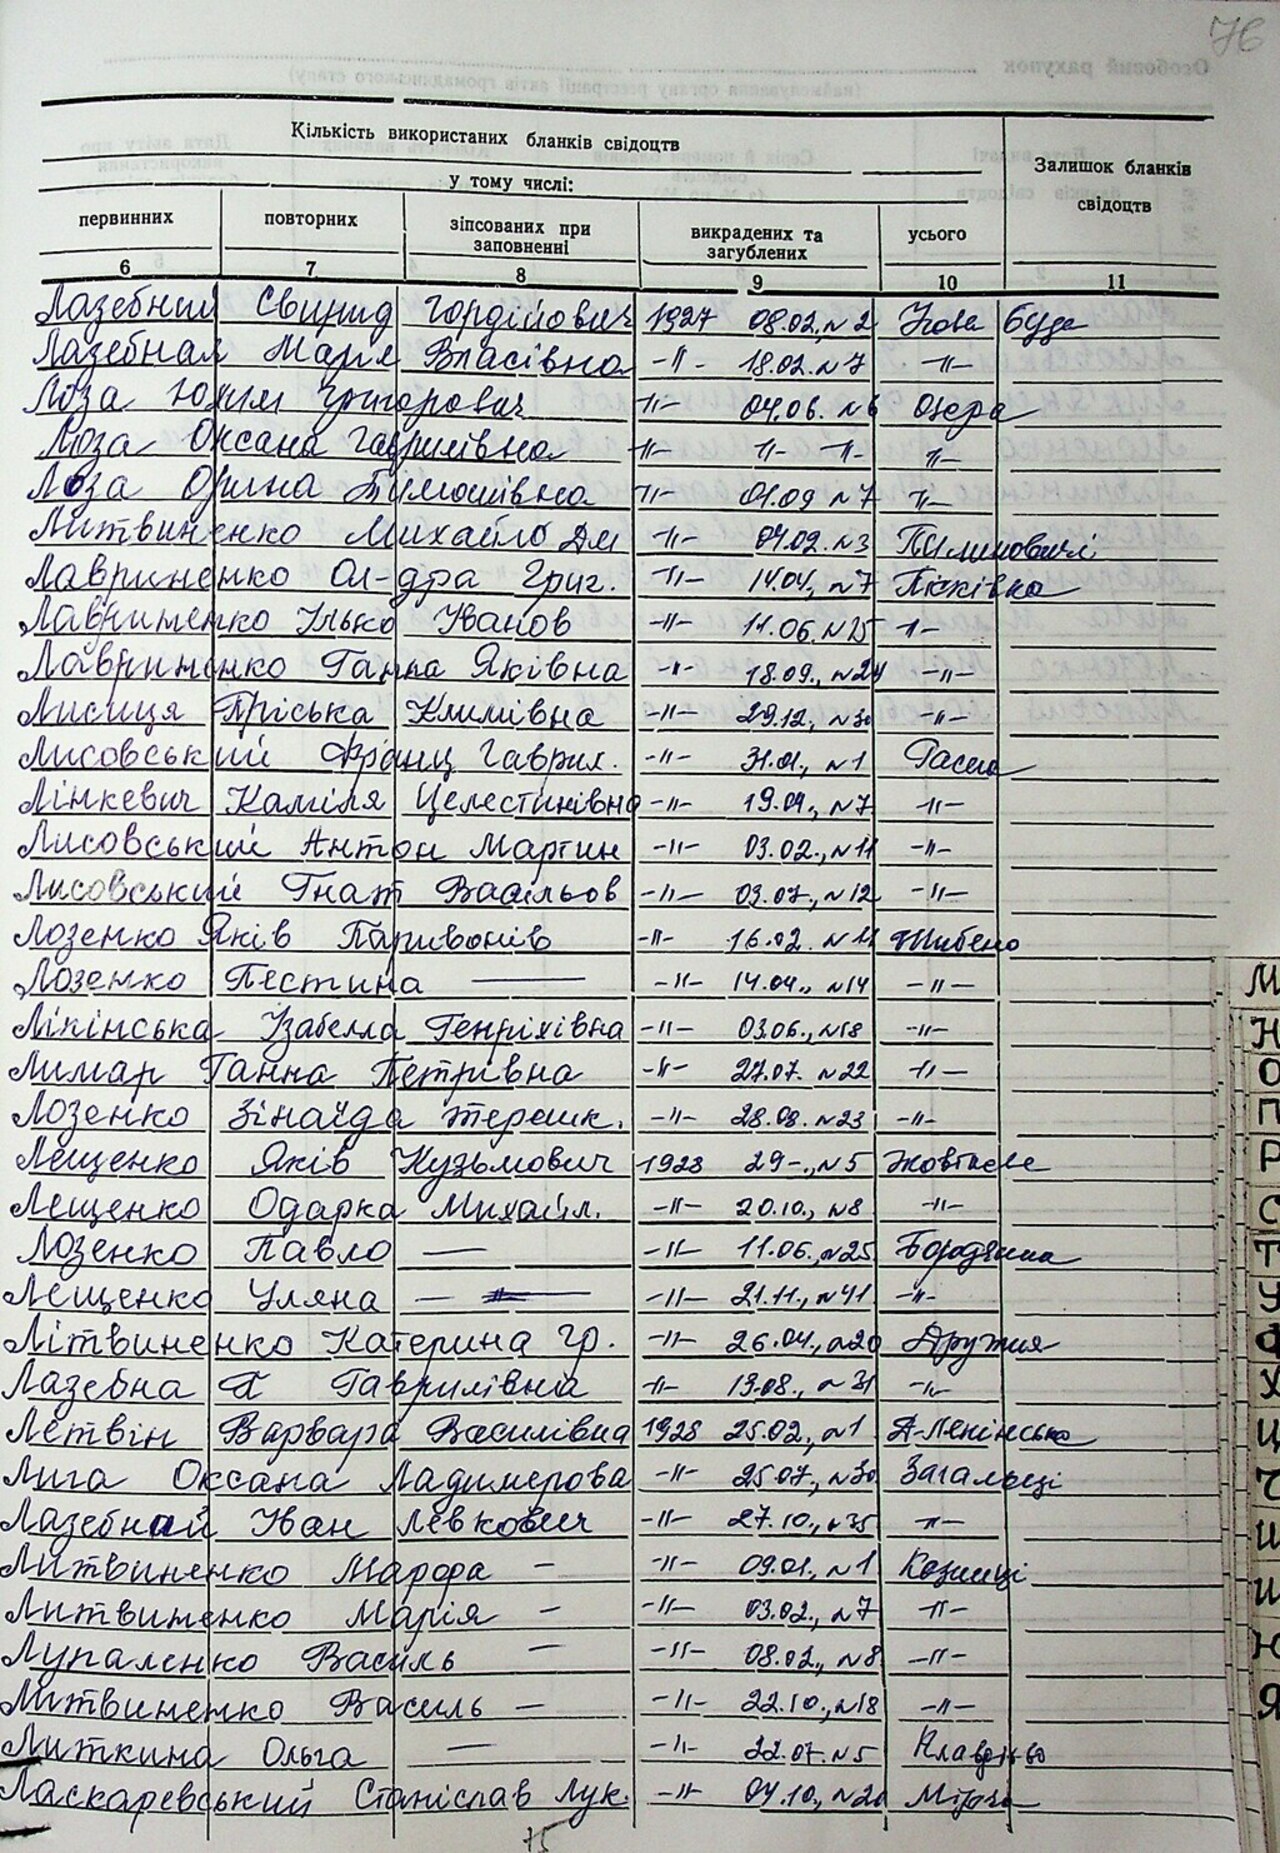 76
Кількість використаних бланків свідоцтв
Залишок бланків свідоцтв
у тому числі:
первинних повторних зіпсованих при заповненні викрадених та загублених усього
6 7 8 9 10 11
Лазебний Свирид Гордійович 1927 08.02, №2 Нова Буда
Лазебная Марія Власівна -"- 18.02. №7 -"-
Лоза Юхим Григорович -"- 04.06. №6 Озера
Лоза Оксана Гаврилівна -"- -"- -"- -"-
Лоза Орина Тимошівна -"- 01.09 №7 -"-
Литвиненко Михайло Дм -"- 04.02. №3 Пилиповичі
Лавриненко Ол-дра Григ. -"- 14.01., №7 Пісківка
Лавриненко Ілько Іванов -"- 11.06. №25 -"-
Лавриненко Ганна Яківна -"- 18.09., №24 -"-
Лисиця Пріська Климівна -"- 29.12, №30 -"-
Лисовський Франц Гаврил. -"- 31.01., №1 Раска
Лінкевич Каміля Целестинівна -"- 19.04., №7 -"-
Лисовський Антон Мартин -"- 03.02., №11 -"-
Лисовський Гнат Васільов -"- 03.07., №12 -"-
Лозенко Яків Паривонів -"- 16.02. №11 Шибено
Лозенко Пестина — -"- 14.04., №14 -"-
Лікінська Ізабелла Генріхівна -"- 03.06., №18 -"-
Лимар Ганна Петрівна -"- 27.07. №22 -"-
Лозенко Зінаїда Терешк. -"- 28.08. №23 -"-
Лещенко Яків Кузьмович 1928 29-., №5 Жовтневе
Лещенко Одарка Михайл. -"- 20.10., №8 -"-
Лозенко Павло — -"- 11.06., №25 Бородянка
Лещенко Уляна — -"- 21.11., №41 -"-
Літвиненко Катерина Гр. -"- 26.04., №20 Дружня
Лазебна П Гаврилівна -"- 13.08., №31 -"-
Летвін Варвара Василівна 1928 25.02., №1 Д-Ленінська
Лига Оксана Ладимерова -"- 25.07., №30 Загальці
Лазебний Іван Левкович -"- 27.10., №35 -"-
Литвиненко Марфа - -"- 09.01., №1 Козинці
Литвиненко Марія - -"- 03.02., №7 -"-
Лупаленко Василь - -"- 08.02., №8 -"-
Литвиненко Василь - -"- 22.10., №18 -"-
Литкина Ольга — -"- 22.07. №5 Клавдієво
Ласкаревський Станіслав Лук. -"- 04.10., №20 Мірча
75
М
Н
О
П
Р
С
Т
У
Ф
Х
Ц
Ч
Ш
Щ
Ю
Я